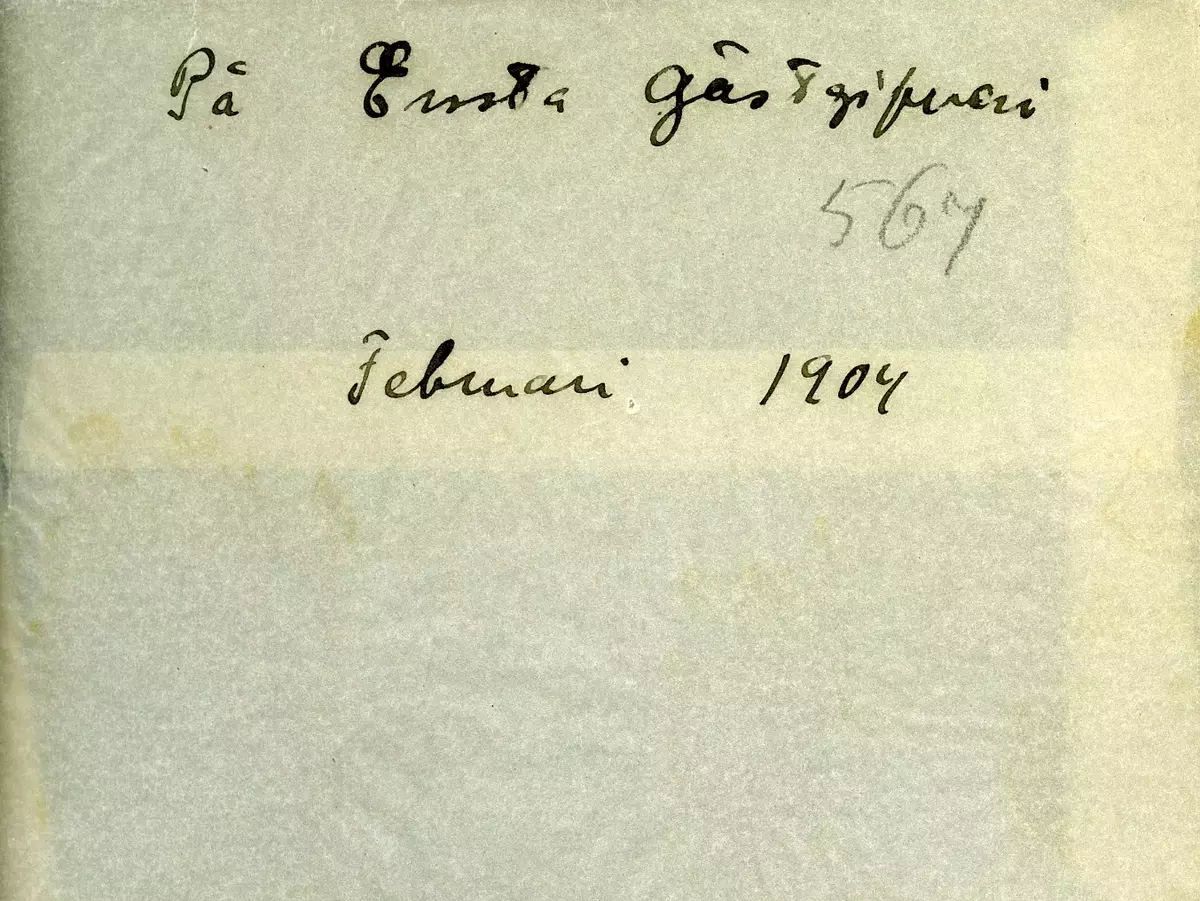 På Ensta Gästgifveri
567
Februari 1907